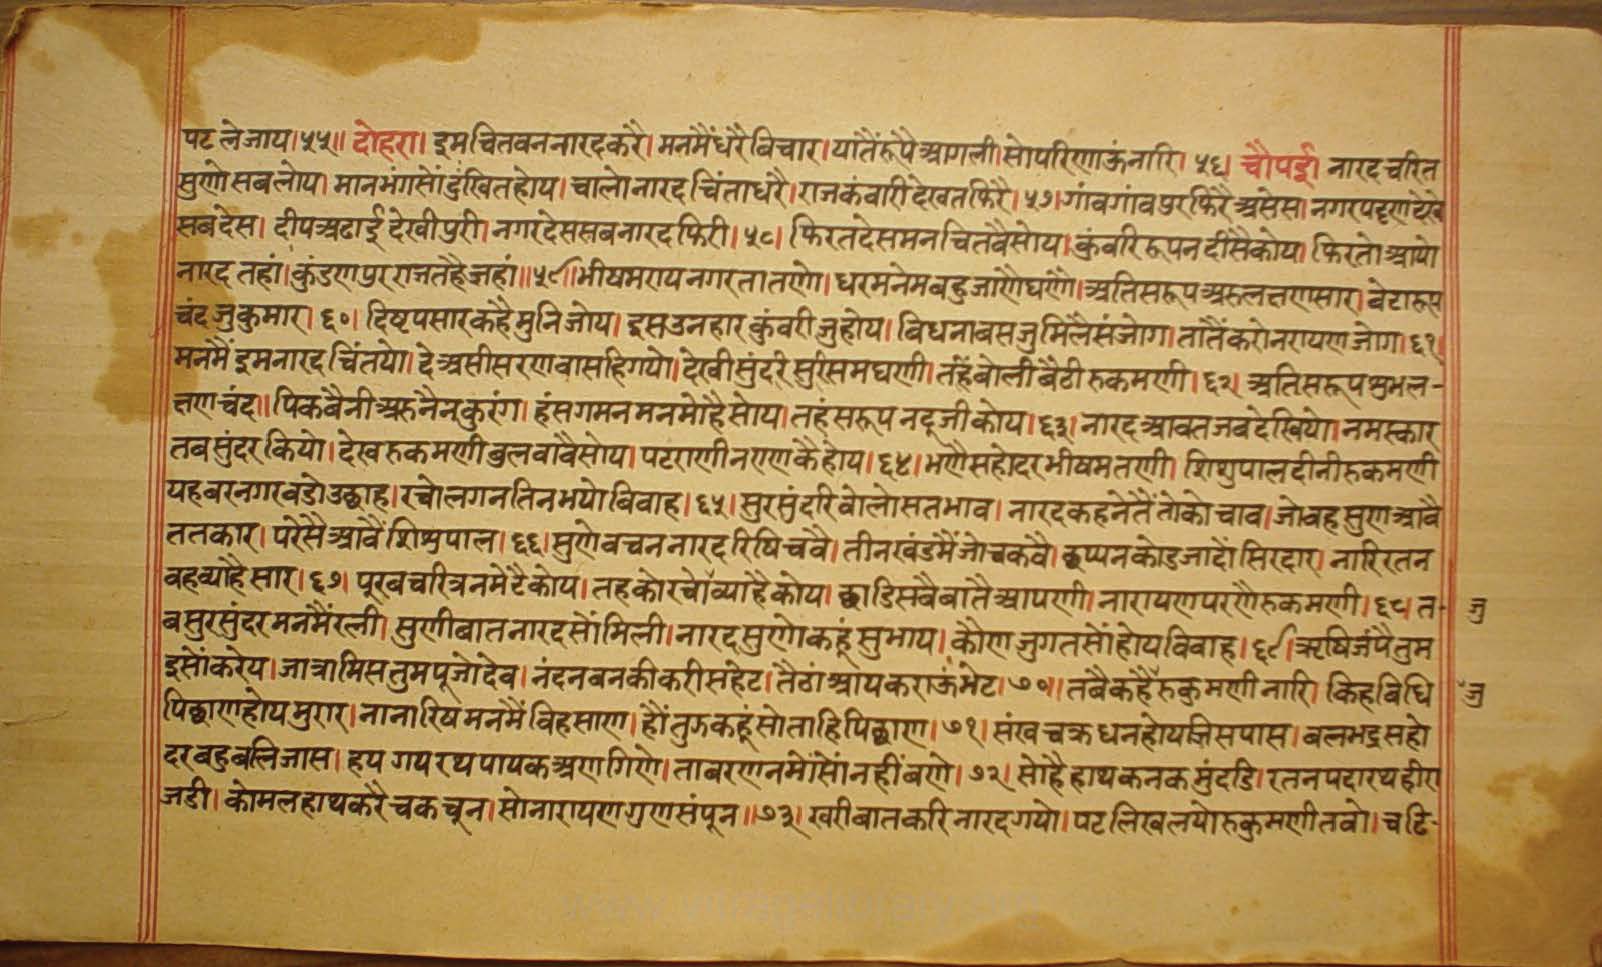 पटलेजाय।५५॥ दोहरा। इमचितवननारदकरै। मनमैंधरैविचार। यातैंरूपैआगली। सोपरिणाऊंनारि। ५६। चौपई। नारदचरित
सुणोसबलोय। मानभंगसोंदुंखितहोय। चालोनारदचिंताधरै। राजकंवारीदेखतफिरै। ५७। गांवगांवपुरफिरैअसेस। नगरपट्टणदेखे
सबदेस। दीपअढाईदेखीपुरी। नगरदेससबनारदफिरी। ५८। फिरतदेसमनचितवैसोय। कुंवरिरूपनदीसैकोय। फिरतोआयो
नारदतहां। कुंडणपुरराजतहैजहां॥५९। भीषमरायनगरतातणो। धरमनेमबहुजाणैघणै। अतिसरूपअरुलक्षणसार। बेटारूप
चंदजुकुमार। ६०। दिष्टपसारकहैमुनिजोय। इसउनहारकुंवरीजुहोय। विधनाबसजुमिलैसंजोग। तातैंकरोनरायणजोग। ६१।
मनमैंइमनारदचिंतयो। देअसीसरणवासहिगयो। देखीसुंदरिसुरिसमघणी। तहंबोलीबैठीरुकमणी। ६२। अतिसरूपशुभल-
क्षणचंद॥पिकबैनीअरुनैनकुरंग। हंसगमनमनमोहैसोय। तहंसरूपनदूजीकोय। ६३। नारदआवतजबदेखियो। नमस्कार
तबसुंदरकियो। देखरुकमणीबुलवावैसोय। पटराणीनराणकैहोय। ६४। भणैसहोदरभीषमतणी। शिशुपालदीनीरुकमणी
यहबरनगरबडोउछाह। रचोलगनतिनभयोबिवाह। ६५। सुरसुंदरिबोलोसतभाव। नारदकहनेतैंतोकोचाव। जोवहसुणआवै
ततकार। परेसैआवैंशिशुपाल। ६६। सुणोबचननारदरिषिचवै। तीनखंडमैंजोचकवै। छप्पनकोडजादोंसिरदार। नारिरतन
वहव्याहैसार। ६७। पूरबचरित्रनमेटैकोय। तहकोरचोव्याहैकोय। छाडिसबैबातैआपणी। नारायणपरणैरुकमणी। ६८। त- जु
बसुरसुंदरमनमैंरली। सुणीबातनारदसोंमिली। नारदसुणोकहूंसुभाय। कौणजुगतसोंहोयविवाह। ६९। ऋषिजंपैतुम
इसोंकरेय। जात्रामिसतुमपूजोदेव। नंदनबनकीकरीसहेट। तैठांआयकराऊंभेट। ७०। तबैकहैंरुकुमणीनारि। किहबिधि जु
पिछाणहोयमुरार। नानारिषमनमैंविहसाण। हौंतुझकहूंसोताहिपिछाण। ७१। संखचक्रधनहोयजिसपास। बलभद्रसहो
दरबहुबलिजास। हयगयरथपायकअणगिणो। ताबरणनमोंसोंनहींबणो। ७२। सोहैहाथकनकमुंदडि। रतनपदारथहीरा
जडी। कोमलहाथकरैचकचून। सोनारायणगुणसंपून॥७३। खरीबातकरिनारदगयो। पटलिखलयोरुकुमणीतवो। चटि-